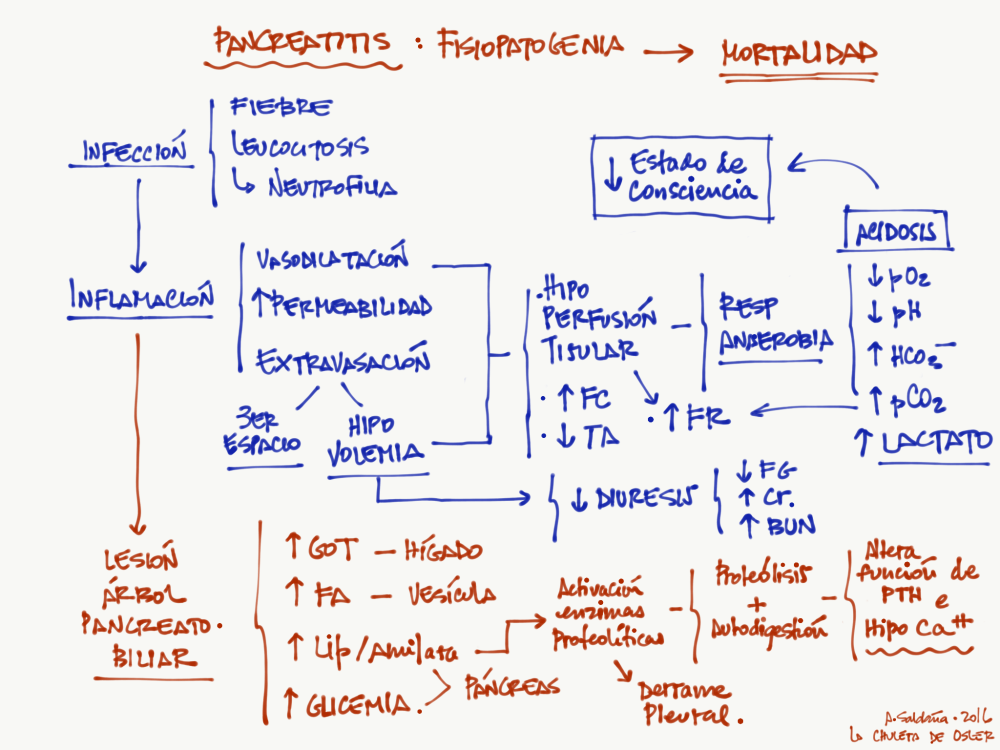 PANCREATITIS : FISIOPATOGENIA → MORTALIDAD
INFECCIÓN
FIEBRE
LEUCOCITOSIS
↳ NEUTROFILIA
↓ Estado de
consciencia
ACIDOSIS
↓ pO2
↓ pH
↑ HCO3⁻
↑ pCO2
↑ LACTATO
INFLAMACIÓN
VASODILATACIÓN
↑ PERMEABILIDAD
EXTRAVASACIÓN
3ER
ESPACIO
HIPO
VOLEMIA
. HIPO
PERFUSIÓN
TISULAR
· ↑ FC
· ↓ TA
RESP
ANAEROBIA
· ↑ FR
↓ DIURESIS
↓ FG
↑ Cr.
↑ BUN
LESIÓN
ÁRBOL
PANCREATO.
BILIAR
↑ GOT — HÍGADO
↑ FA — VESÍCULA
↑ Lip/Amilasa
↑ GLICEMIA.
PÁNCREAS
Activación
enzimas
Proteolíticas
Derrame
Pleural.
Proteólisis
+
Autodigestión
Altera
función de
PTH e
Hipo Ca⁺⁺
A. Saldaña · 2016
LA CHULETA DE OSLER